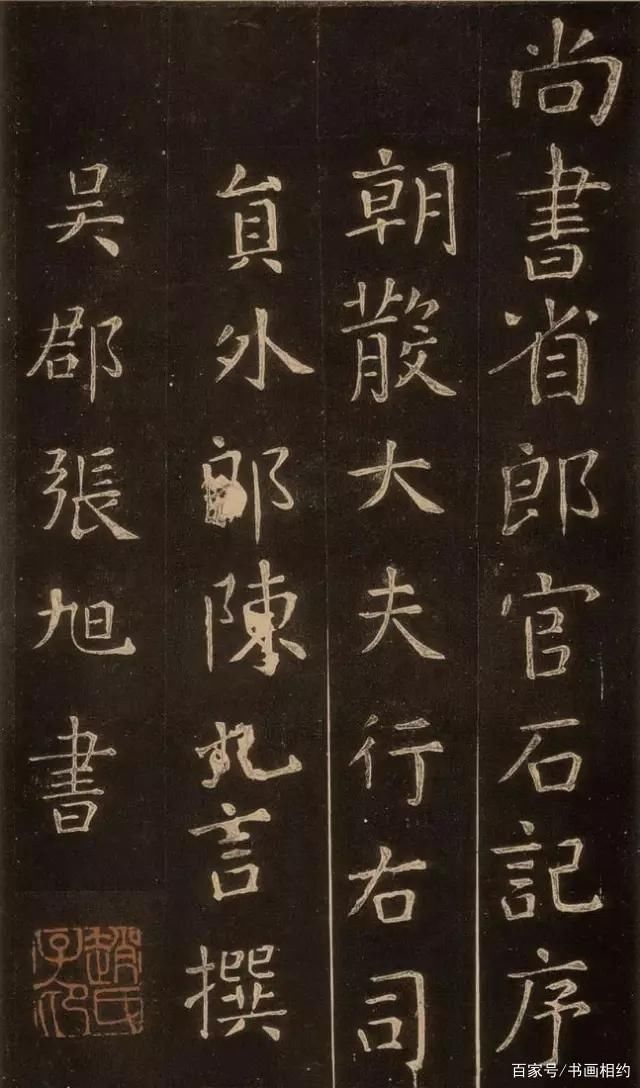 尚書省郎官石記序
朝散大夫行右司
貟外郎陳九言撰
吴郡張旭書
趙氏子印
百家号/书画相约